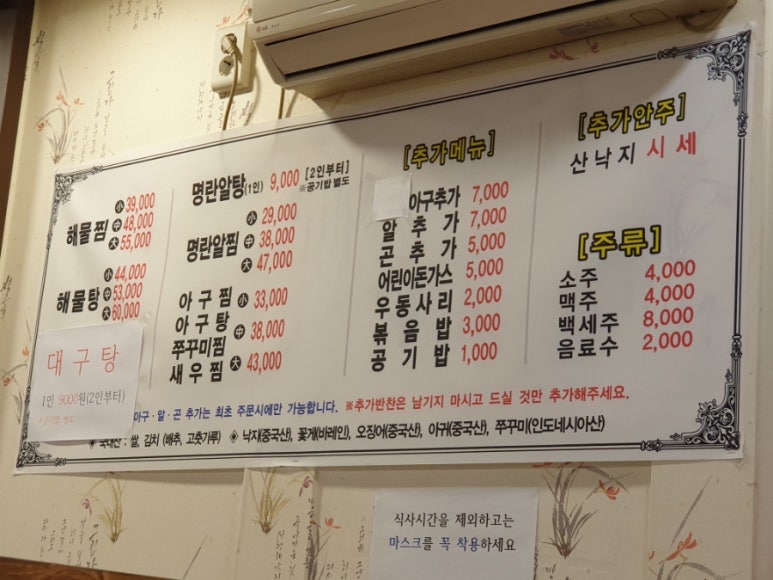 해물찜 小 39,000
中 48,000
大 55,000
해물탕 小 44,000
中 53,000
大 60,000
대구탕
1인 9000원(2인부터)
※공기밥 별도
명란알탕(1인) 9,000 [2인부터]
※공기밥 별도
명란알찜 小 29,000
中 38,000
大 47,000
아구찜 小 33,000
아구탕
쭈꾸미찜 中 38,000
새우찜 大 43,000
[추가메뉴]
아구추가 7,000
알추가 7,000
곤추가 5,000
어린이돈가스 5,000
우동사리 2,000
볶음밥 3,000
공기밥 1,000
[추가안주]
산낙지 시세
[주류]
소주 4,000
맥주 4,000
백세주 8,000
음료수 2,000
아구·알·곤 추가는 최초 주문시에만 가능합니다. ※추가반찬은 남기지 마시고 드실 것만 추가해주세요.
국내산 : 쌀, 김치 (배추, 고춧가루) ◈ 낙지(중국산), 꽃게(바레인), 오징어(중국산), 아귀(중국산), 쭈꾸미(인도네시아산)
식사시간을 제외하고는
마스크를 꼭 착용하세요